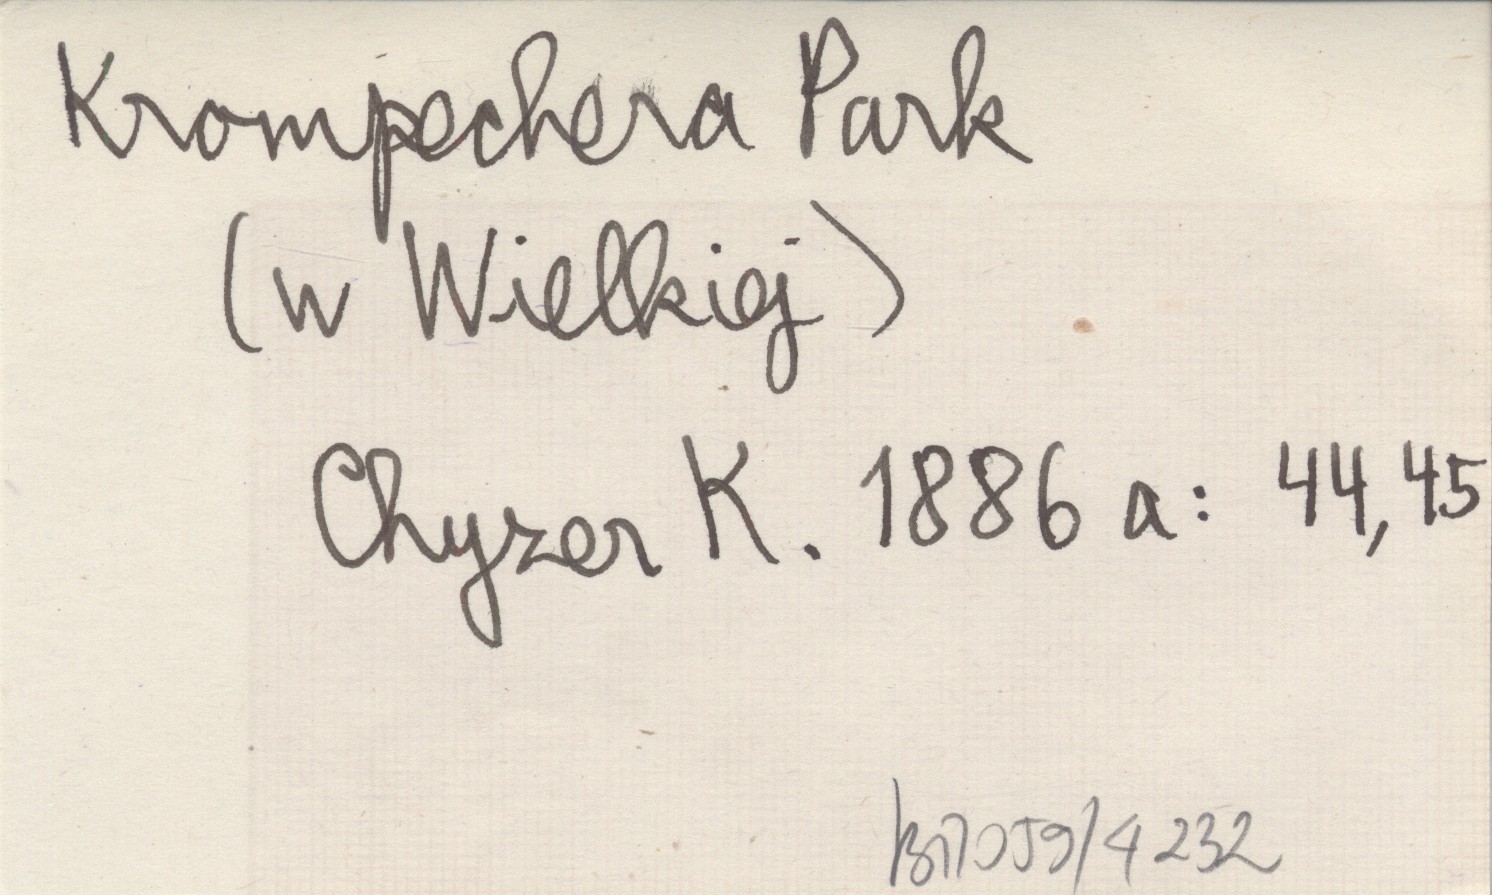 Krompechera Park
(w Wielkiej)
Chyzer K. 1886 a: 44, 45
4232